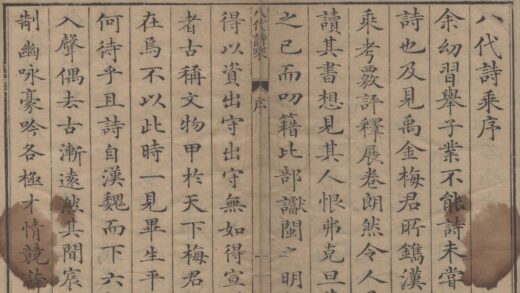 八代詩乘序
余幼習舉子業不能詩未嘗
詩也及見禹金梅君所鐫漢
乘考覈評釋展卷朗然令人
讀其書想見其人恨弗克旦
之已而叨籍比部讞閩之明
八代詩乘 序
得以資出守出守無如得宣
者古稱文物甲於天下梅君
在焉不以此時一見畢生平
何待乎且詩自漢魏而下六
入聲偶去古漸遠然其間宸
制幽咏豪吟各極才情競